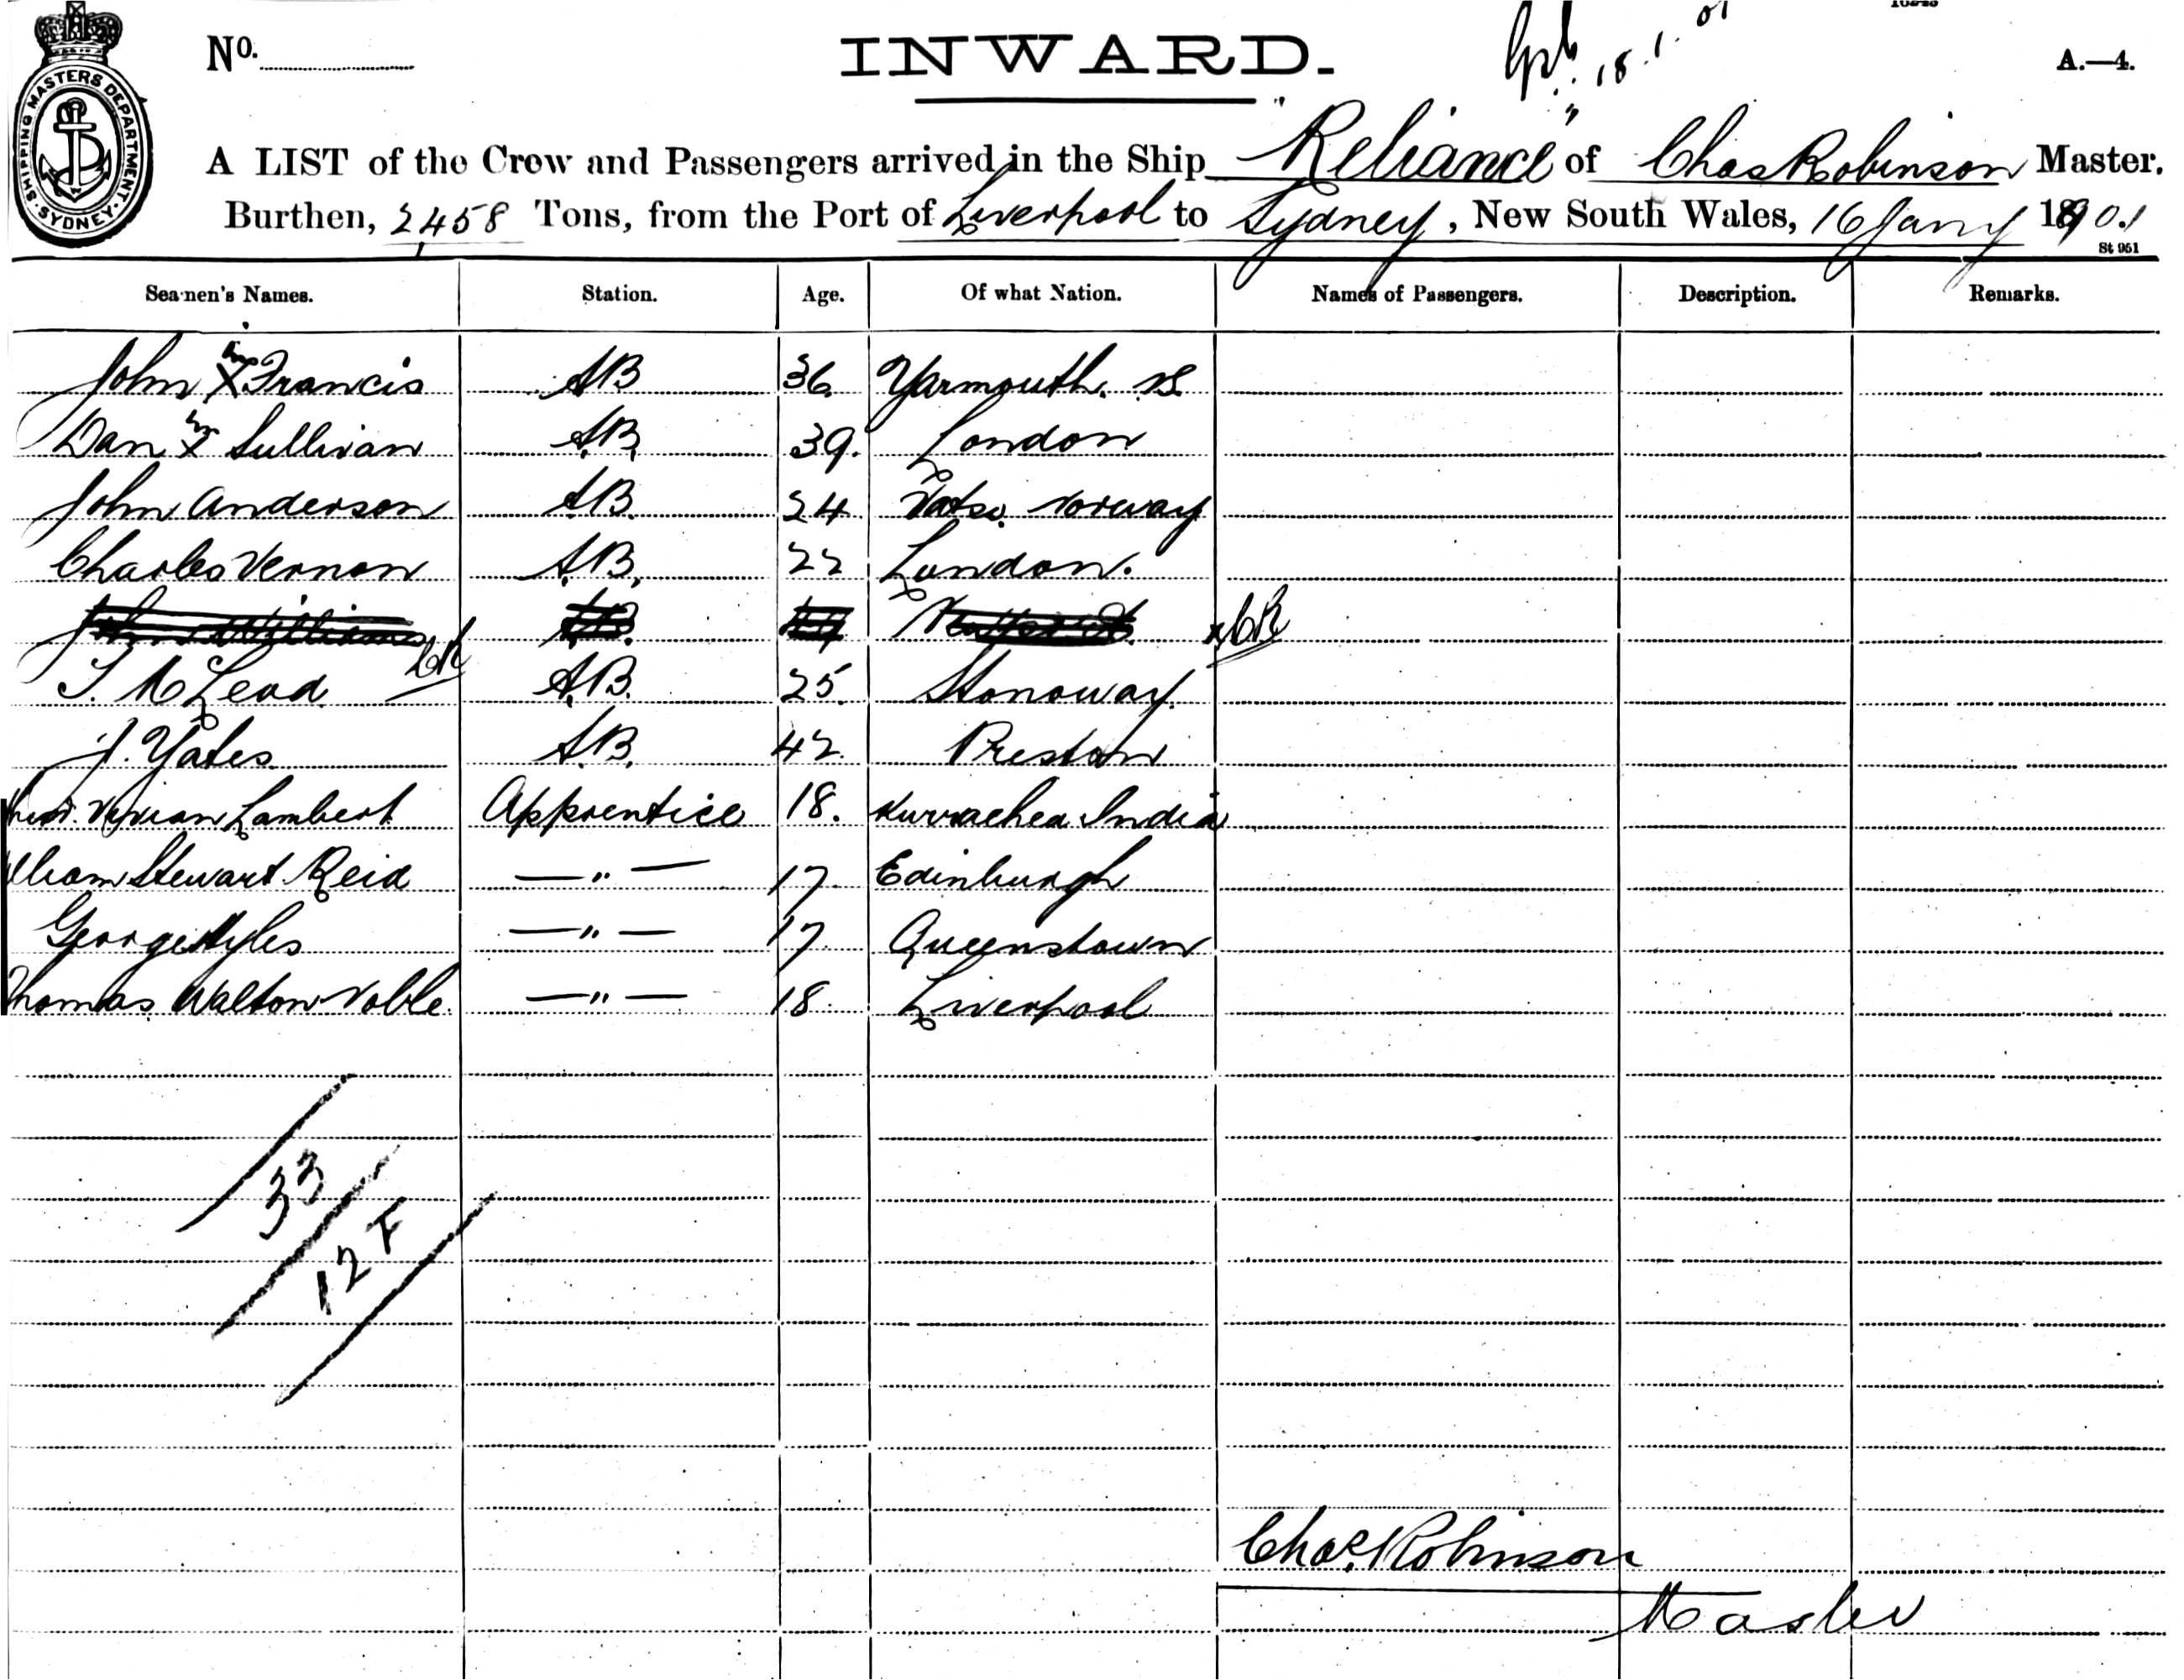 SHIPPING MASTERS DEPARTMENT. SYDNEY.
No. INWARD. 18.1.01 A.—4.
A LIST of the Crew and Passengers arrived in the Ship "Reliance" of Chas Robinson Master.
Burthen, 2458 Tons, from the Port of Liverpool to Sydney, New South Wales, 16 Jany 1901
St 951
Seamen's Names. Station. Age. Of what Nation. Names of Passengers. Description. Remarks.
John X Francis AB 36 Yarmouth. NS
Dan X Sullivan A.B. 39. London
John Anderson A.B. 24 Norway
Charles Vernon A.B. 22 London.
John Williams A.B. CR
CR
T. McLeod A.B. 25. Stonoway.
J. Yates A.B. 42. Preston
Vivian Lambert Apprentice 18. Kurrachea India
lliam Stewart Reid —"— 17. Edinburgh
George Myles —"— 17 Queenstown
Thomas Walton Noble. —"— 18. Liverpool
33
12 F
Chas. Robinson
Master